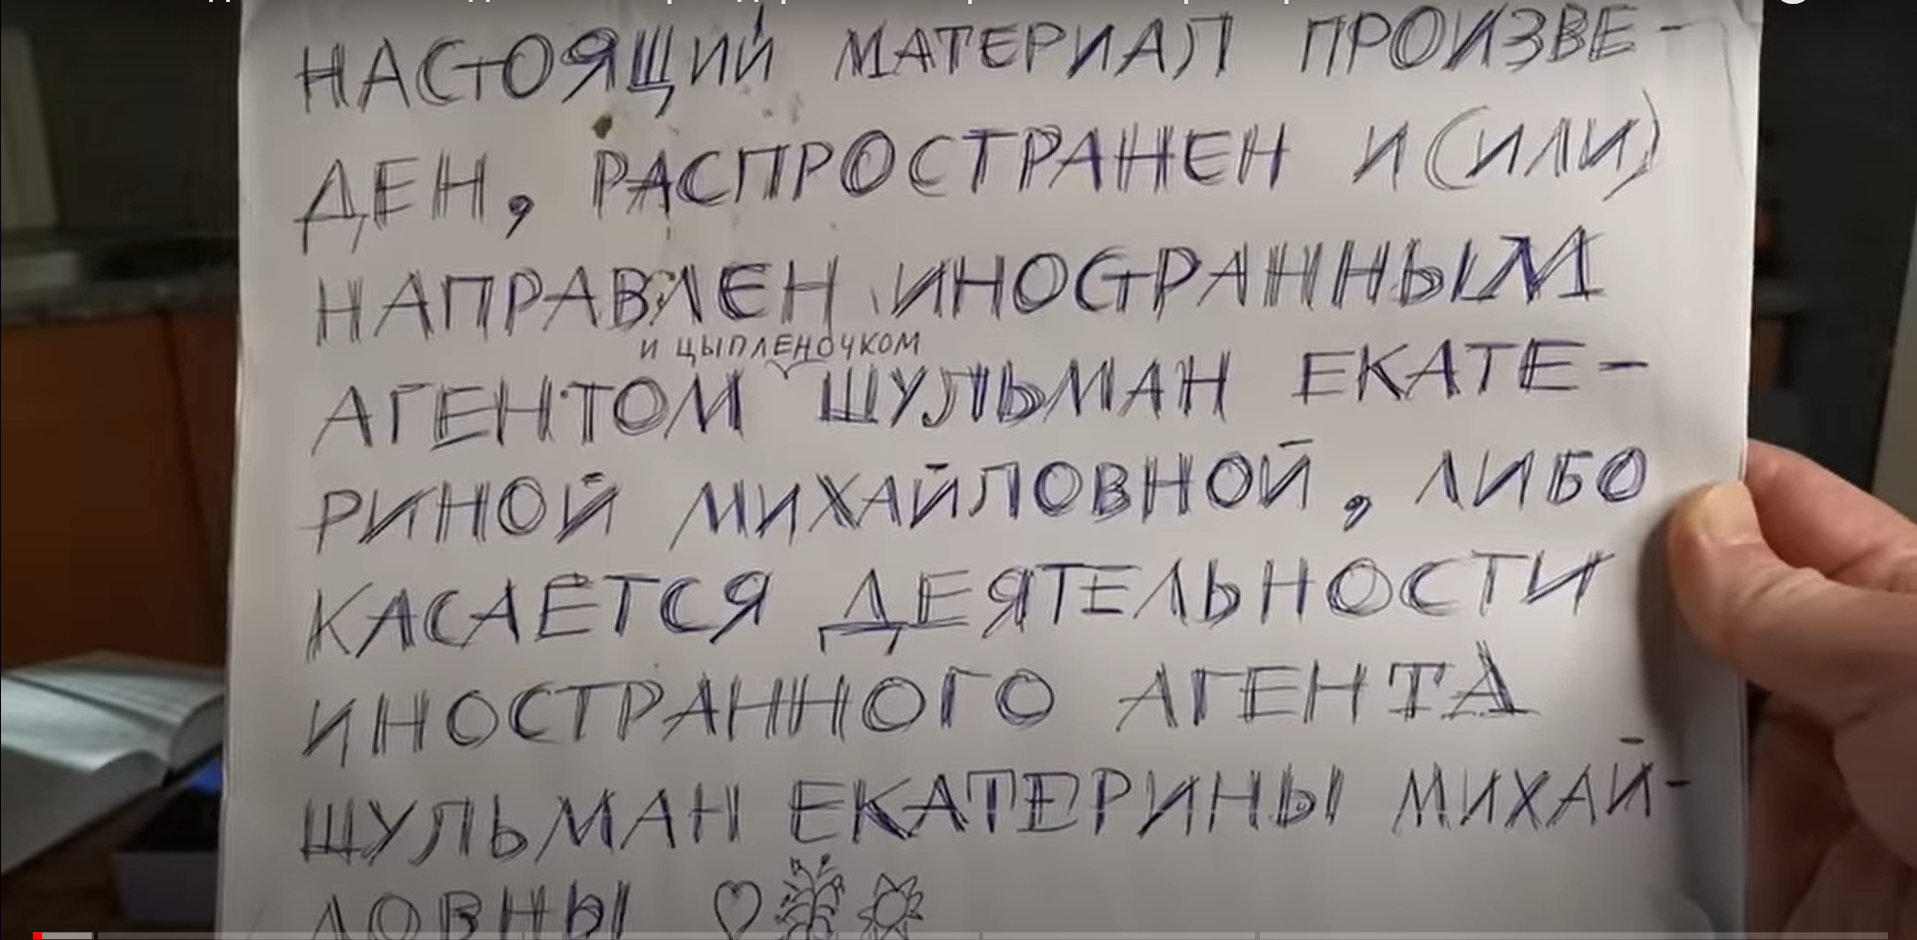 НАСТОЯЩИЙ МАТЕРИАЛ ПРОИЗВЕ-
ДЕН, РАСПРОСТРАНЕН И (ИЛИ)
НАПРАВЛЕН ИНОСТРАННЫМ
И ЦЫПЛЕНОЧКОМ
АГЕНТОМ ШУЛЬМАН ЕКАТЕ-
РИНОЙ МИХАЙЛОВНОЙ, ЛИБО
КАСАЕТСЯ ДЕЯТЕЛЬНОСТИ
ИНОСТРАННОГО АГЕНТА
ШУЛЬМАН ЕКАТЕРИНЫ МИХАЙ-
ЛОВНЫ